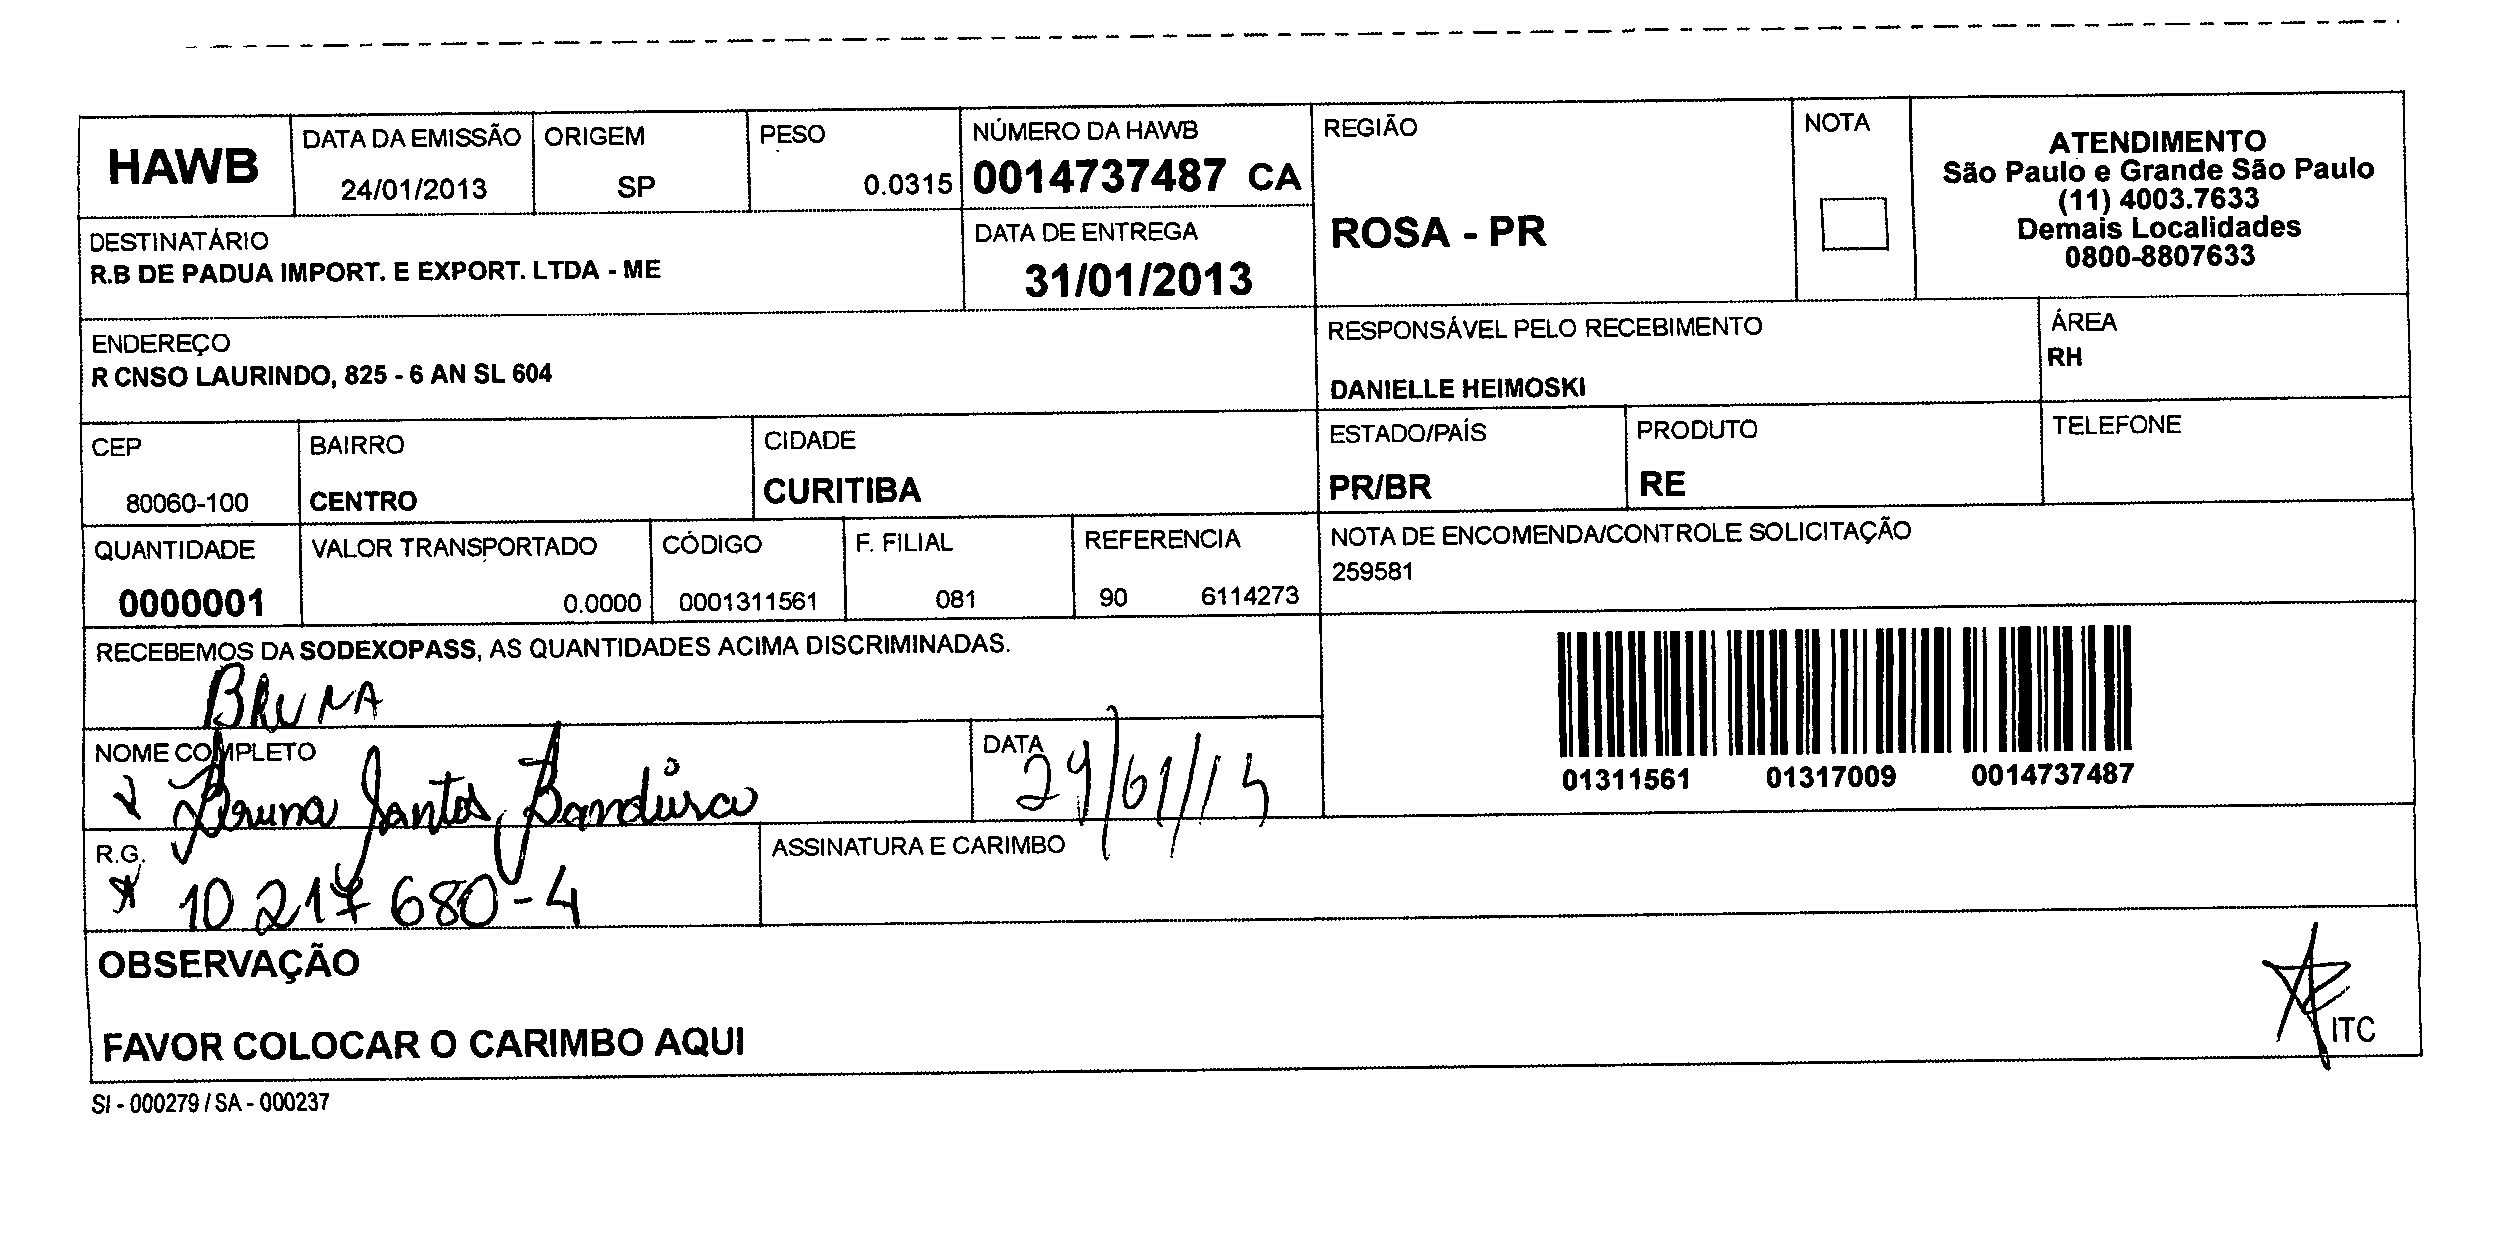 HAWB
DATA DA EMISSÃO
24/01/2013
ORIGEM
SP
PESO
0.0315
NÚMERO DA HAWB
0014737487 CA
REGIÃO
ROSA - PR
NOTA
ATENDIMENTO
São Paulo e Grande São Paulo
(11) 4003.7633
Demais Localidades
0800-8807633
DESTINATÁRIO
R.B DE PADUA IMPORT. E EXPORT. LTDA - ME
DATA DE ENTREGA
31/01/2013
ENDEREÇO
R CNSO LAURINDO, 825 - 6 AN SL 604
RESPONSÁVEL PELO RECEBIMENTO
DANIELLE HEIMOSKI
ÁREA
RH
CEP
80060-100
BAIRRO
CENTRO
CIDADE
CURITIBA
ESTADO/PAÍS
PR/BR
PRODUTO
RE
TELEFONE
QUANTIDADE
0000001
VALOR TRANSPORTADO
0.0000
CÓDIGO
0001311561
F. FILIAL
081
REFERENCIA
90 6114273
NOTA DE ENCOMENDA/CONTROLE SOLICITAÇÃO
259581
RECEBEMOS DA SODEXOPASS, AS QUANTIDADES ACIMA DISCRIMINADAS.
BRUNA
NOME COMPLETO
Bruna Santos Bandura
DATA
29/01/13
01311561 01317009 0014737487
R.G.
10 217 680-4
ASSINATURA E CARIMBO
OBSERVAÇÃO
FAVOR COLOCAR O CARIMBO AQUI
ITC
SI - 000279 / SA - 000237